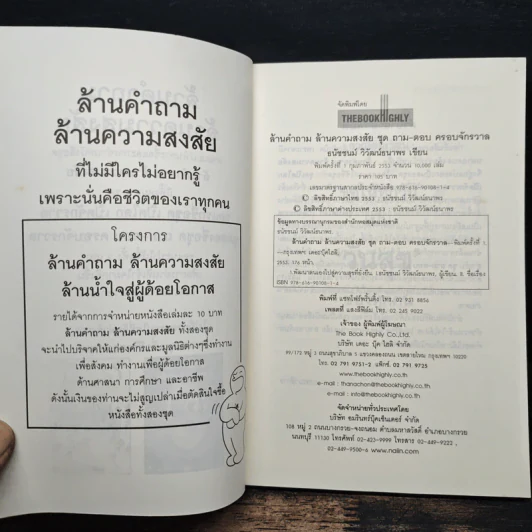 ล้านคำถาม
ล้านความสงสัย
ที่ไม่มีใครไม่อยากรู้
เพราะนั่นคือชีวิตของเราทุกคน
โครงการ
ล้านคำถาม ล้านความสงสัย
ล้านน้ำใจสู่ผู้ด้อยโอกาส
รายได้จากการจำหน่ายหนังสือเล่มละ 10 บาท
ล้านคำถาม ล้านความสงสัย ทั้งสองชุด
จะนำไปบริจาคให้แก่องค์กรและมูลนิธิต่างๆซึ่งทำงาน
เพื่อสังคม ทำงานเพื่อผู้ด้อยโอกาส
ด้านศาสนา การศึกษา และอาชีพ
ดังนั้นเงินของท่านจะไม่สูญเปล่าเมื่อตัดสินใจซื้อ
หนังสือทั้งสองชุด
จัดพิมพ์โดย
THEBOOKHIGHLY
ล้านคำถาม ล้านความสงสัย ชุด ถาม-ตอบ ครอบจักรวาล
ธนัชชนม์ วิวัฒน์ธนาพร เขียน
พิมพ์ครั้งที่ 1 กุมภาพันธ์ 2553 จำนวน 10,000 เล่ม
ราคา 185 บาท
เลขมาตรฐานสากลประจำหนังสือ 978-616-90108-1-4
© ลิขสิทธิ์ภาษาไทย 2553 : ธนัชชนม์ วิวัฒน์ธนาพร
© ลิขสิทธิ์ภาษาต่างประเทศ 2553 : ธนัชชนม์ วิวัฒน์ธนาพร
ข้อมูลทางบรรณานุกรมของสำนักหอสมุดแห่งชาติ
ธนัชชนม์ วิวัฒน์ธนาพร.
ล้านคำถาม ล้านความสงสัย ชุด ถาม-ตอบ ครอบจักรวาล.-พิมพ์ครั้งที่ 1.
--กรุงเทพฯ: เดอะบุ๊คไฮลี่,
2553. 176 หน้า.
ISBN 978-616-90108-1-4
พิมพ์ที่ แซทโฟร์พริ้นติ้ง โทร. 02 931 8856
เพลตที่ แสงสีฟิล์ม โทร. 02 245 9022
เจ้าของ ผู้พิมพ์ผู้โฆษณา
The Book Highly Co.,Ltd.
บริษัท เดอะ บุ๊ค ไฮลี่ จำกัด
โทร. 02 791 9751-2 แฟ็กซ์. 02 791 9725
www.thebookhighly.co.th
e-mail : thanachon@thebookhighly.co.th
e-mail : info@thebookhighly.co.th
จัดจำหน่ายทั่วประเทศโดย
บริษัท อมรินทร์บุ๊คเซ็นเตอร์ จำกัด
108 หมู่ 2 ถนนบางกรวย-จงถนอม ตำบลมหาสวัสดิ์ อำเภอบางกรวย
นนทบุรี 11130 โทรศัพท์ 02-423-9999 โทรสาร 02-449-9222,
02-449-9500-6 www.naiin.com